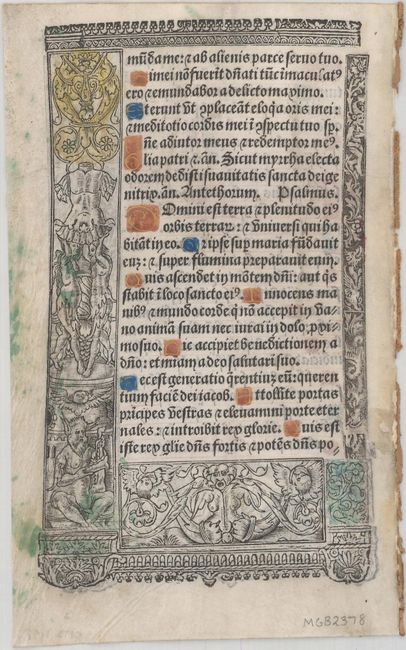 mūda me: ⁊ ab alienis parce seruo tuo.
Si mei nō fuerīt dn̄ati tūc īmaculatꝰ
ero ⁊ emundabor a delicto maximo.
Et erunt vt ꝯplaceāt eloq̄a oris mei:
⁊ meditatio cordis mei ī ꝯspectu tuo sp̄.
Dn̄e adiutor meus ⁊ redemptor meꝰ.
Glia patri ⁊. an̄. Sicut myrrha electa
odorem dedisti suauitatis sancta dei ge
nitrix. an̄. Ante thorum. Psalmus.
Domini est terra ⁊ plenitudo eiꝰ
orbis terrar̄: ⁊ vniuersi qui ha
bitāt in eo. Quia ipse sup maria fūdauit
eum: ⁊ super flumina preparauit eum.
Quis ascendet in mōtem dn̄i: aut q̄s
stabit ī loco sancto eiꝰ. Innocens ma
nibꝰ ⁊ mundo corde q̄ nō accepit in va-
no animā suam nec iurai in dolo ꝓxi-
mo suo. Hic accipiet benedictionem a
dn̄o: et miam a deo salutari suo.
Hec est generatio q̄rentiuz eū: queren
tium faciē dei iacob. Attollite portas
prīcipes vestras ⁊ eleuamini porte eter
nales: ⁊ introibit rex glorie. Quis est
iste rex glie dn̄s fortis ⁊ potēs dn̄s po-
MGB2378